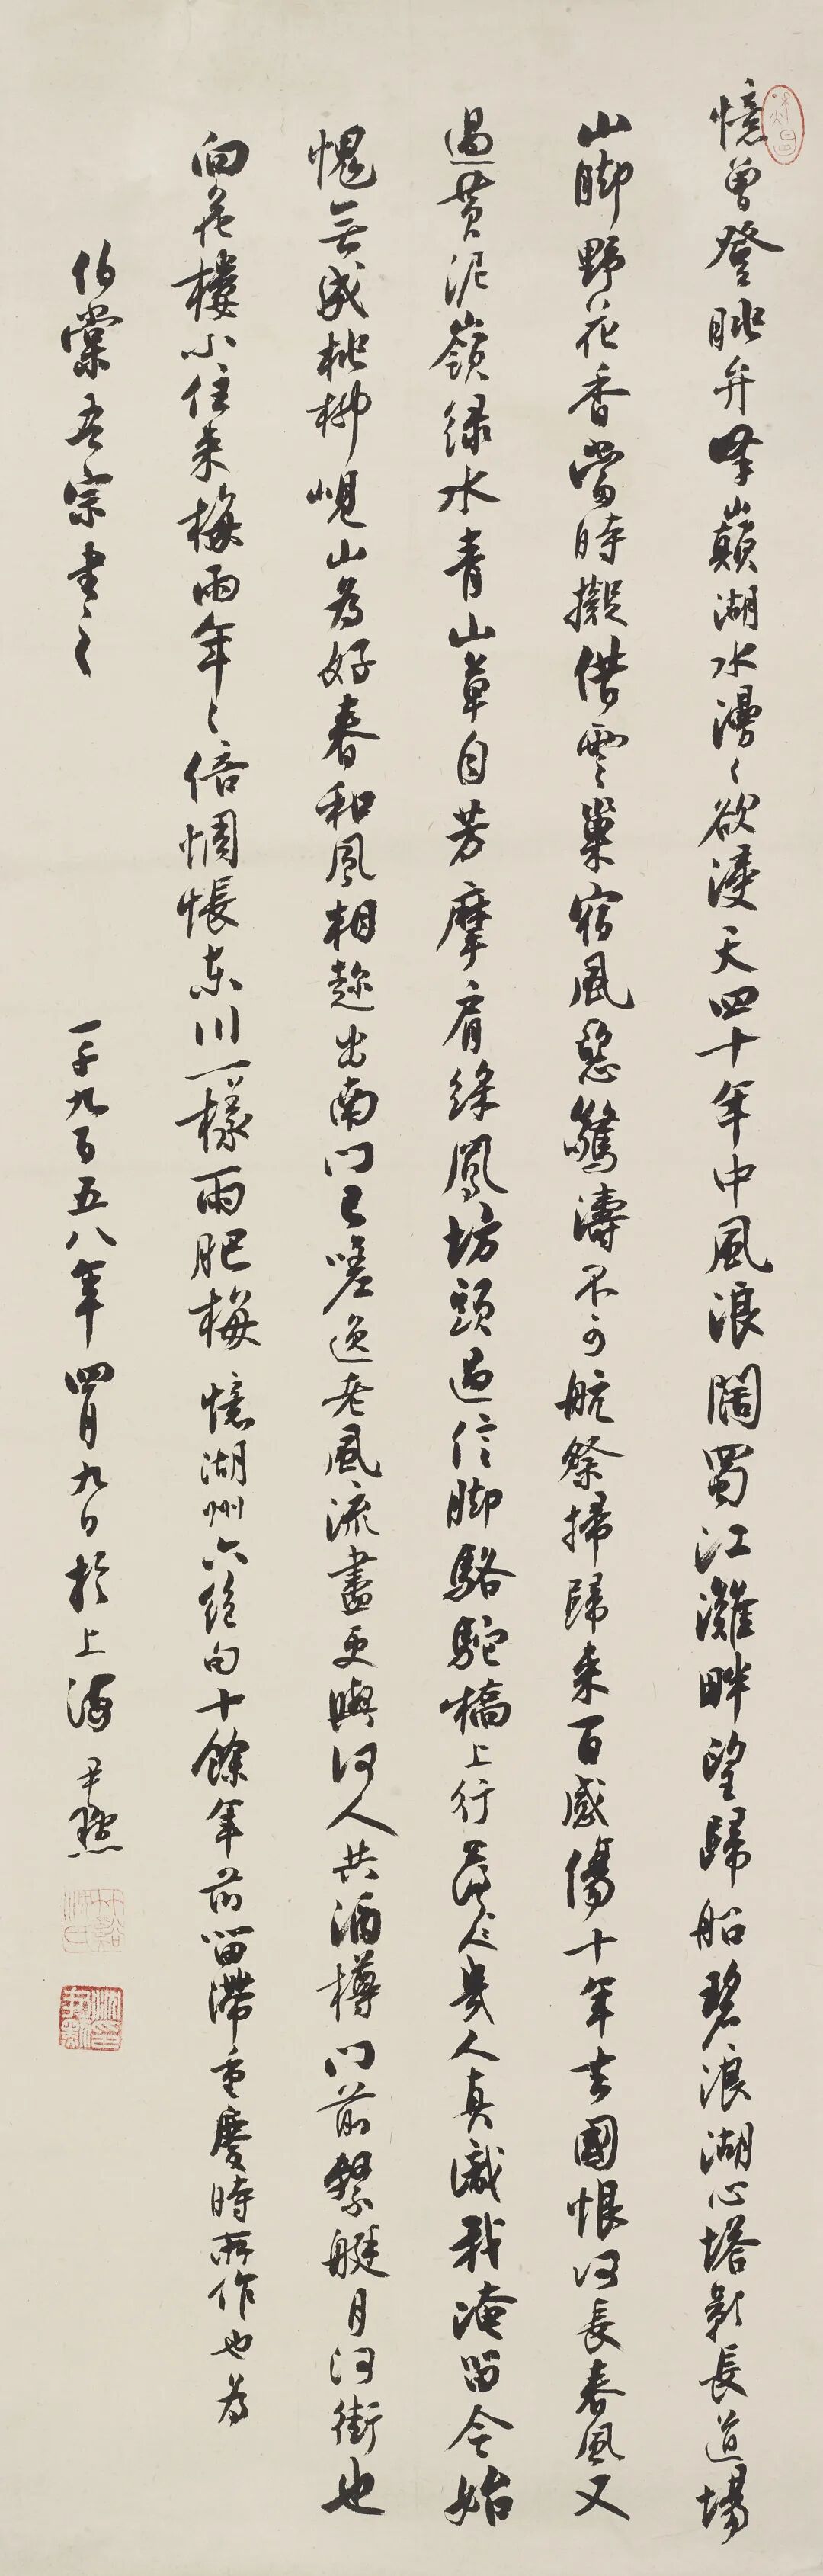 憶曾登眺弁峯巔湖水漫〻欲浸天四十年中風浪闊蜀江灘畔望歸船碧浪湖心塔影長道場
山脚野花香當時擬借雲巢宿風惡驚濤不可航祭掃歸來百感傷十年去國恨何長春風又
過黃泥嶺綠水青山草自芳摩肩綵鳳坊頭過信脚駱駝橋上行落落幾人真識我淹留今始
愧無成桃柳峴山爲好春和風相趁出南門已嗟逸老風流盡更與何人共酒樽門前繫艇月河街也
向花樓小住來梅雨年〻倍惆悵東川一樣雨肥梅 憶湖州六絕句十餘年前留滯重慶時所作也為
伯棠吾宗書之
一千九百五八年四月九日於上海 尹默
竹谿沈氏
沈尹默